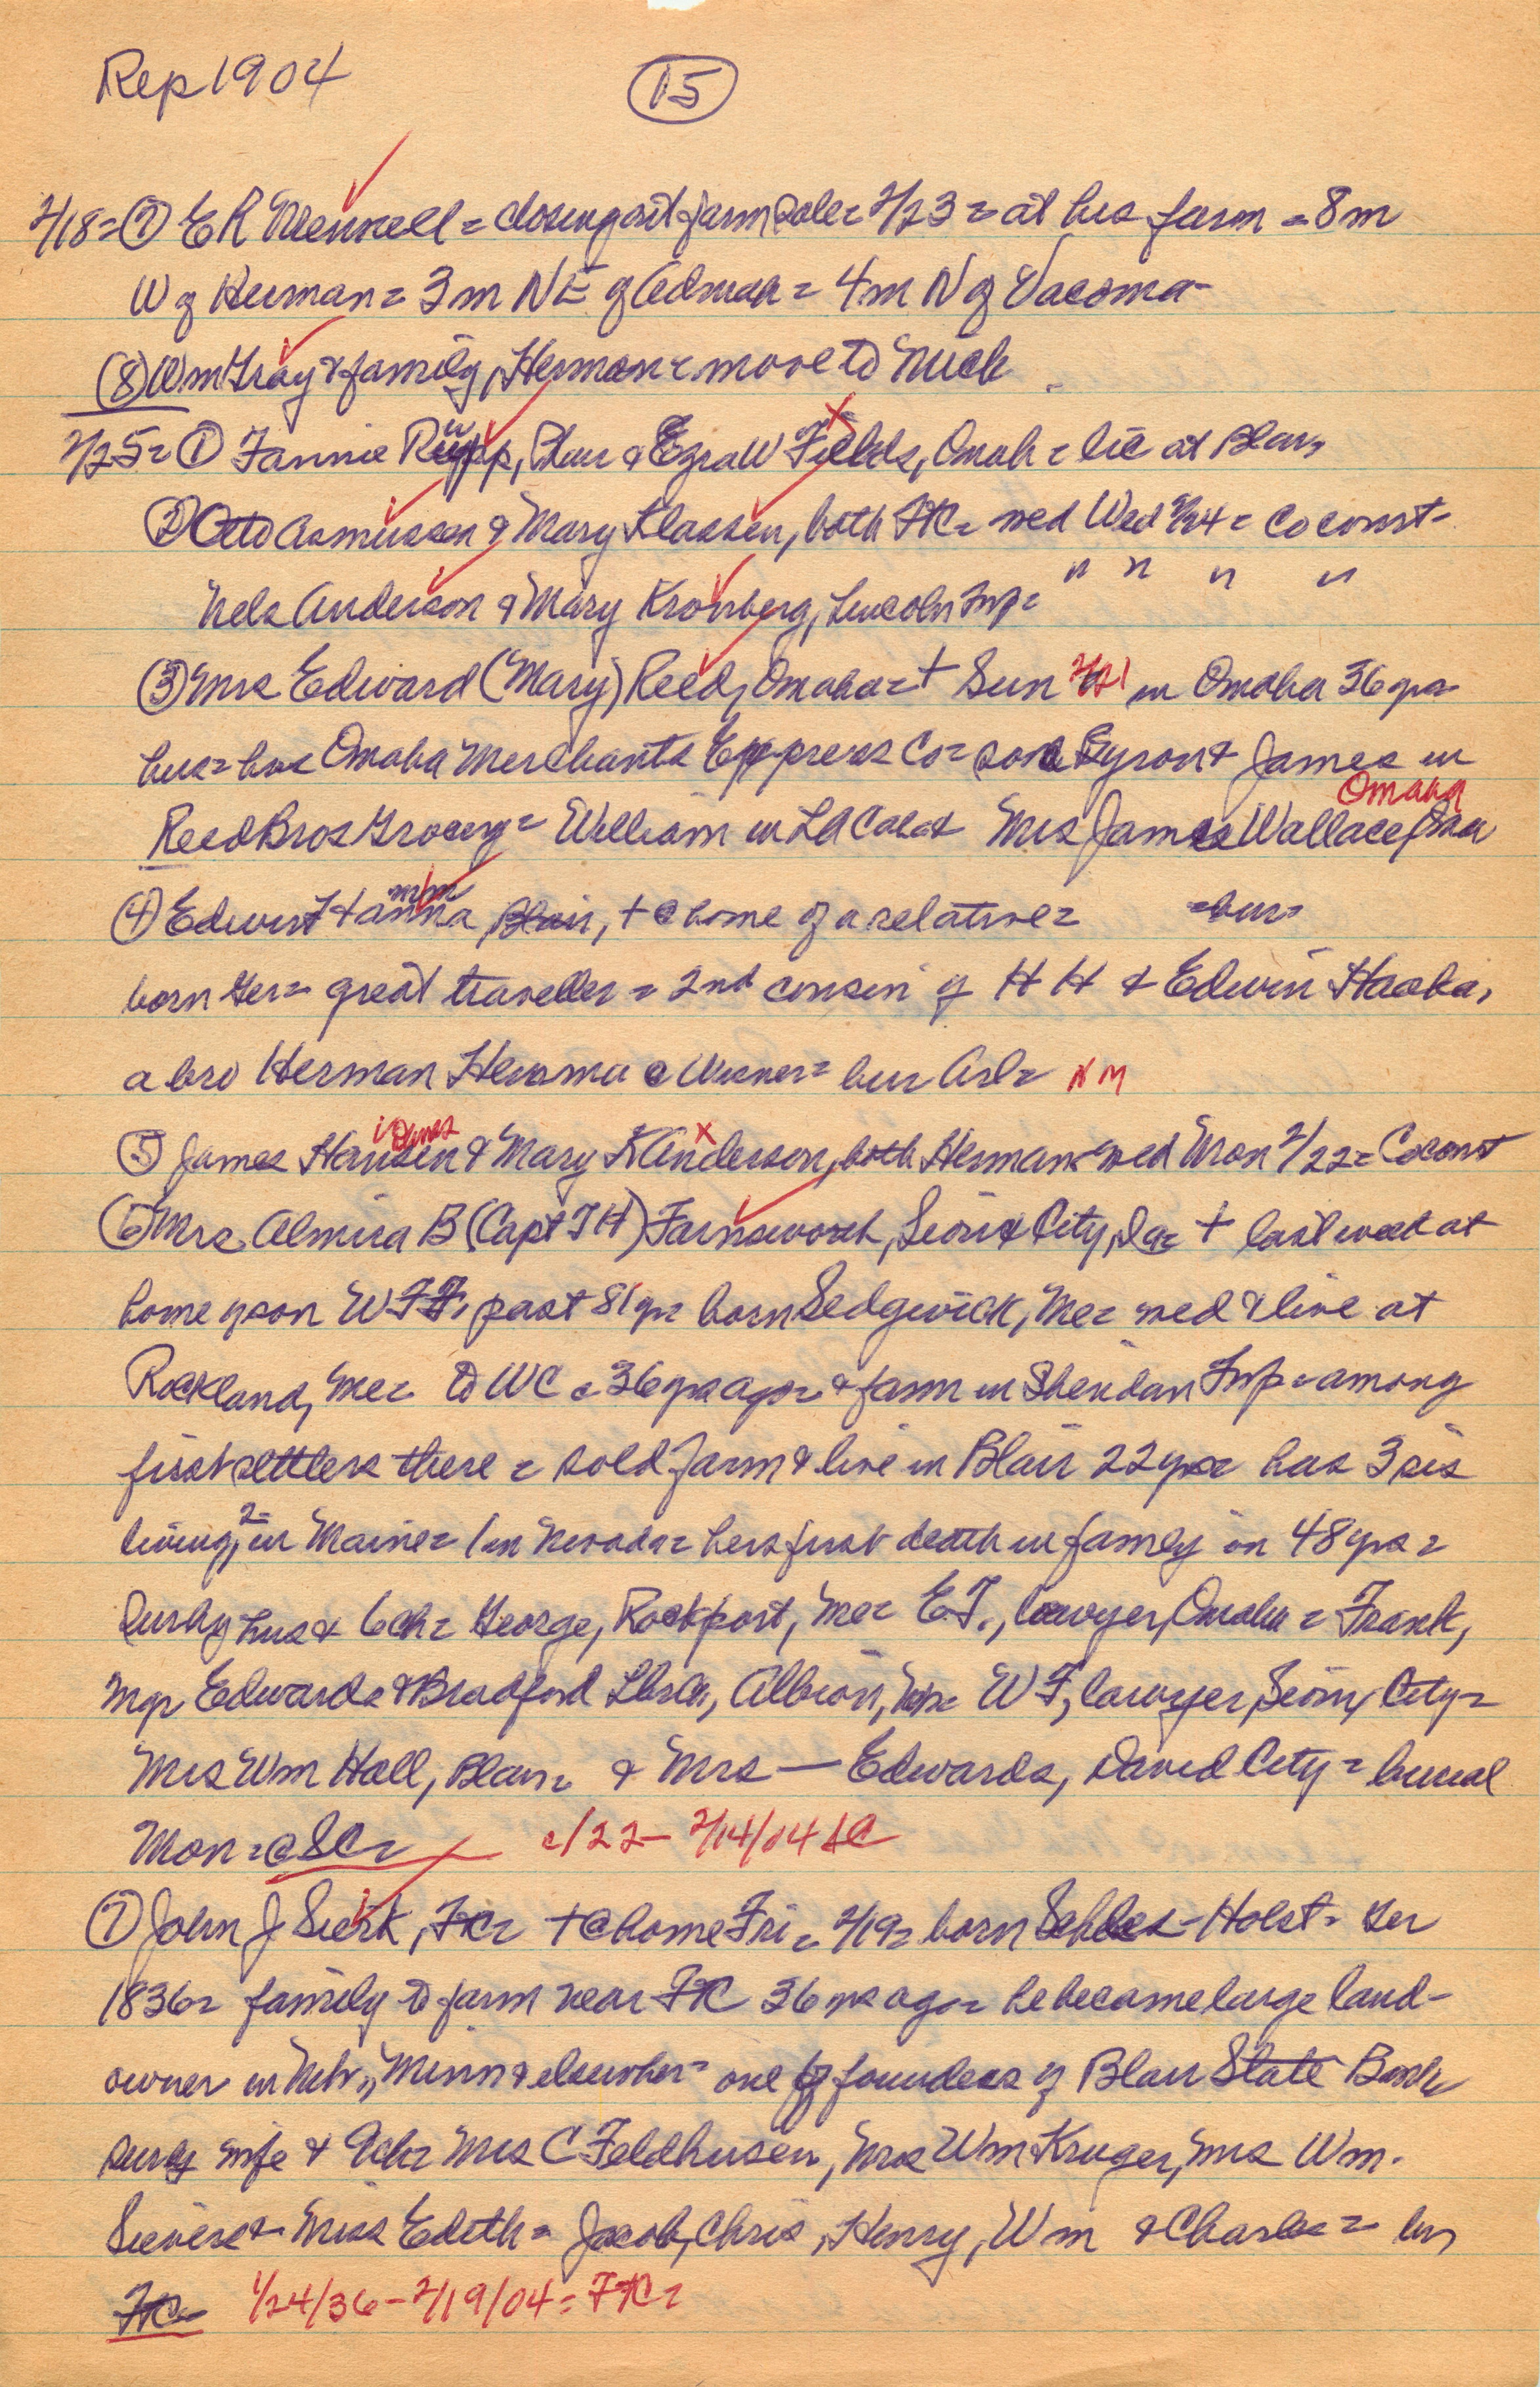 Rep 1904
15
2/18 = (7) E R = closing out farm sale = 2/23 = at his farm = 8 m
W of Herman = 3 m NE of Admah = 4 m N of Vacoma
(8) Wm Gray & family, Herman = move to Mich
2/25 = (1) Fannie Rupp, Blair & Ezra W Fields, Omah = lic at Blair
(2) Otto Asmussen & Mary Klassen, both FtC = wed Wed 2/24 = Co court =
Nels Anderson & Mary Kronberg, Lincoln Twp = " " " "
(3) Mrs Edward (Mary) Reed, Omaha = + Sun 2/21 in Omaha 36 yrs =
hus = has Omaha Merchants Express Co = sons Byron & James in
Omaha
Reed Bros Grocery = William in LA Cal & Mrs James Wallace, Oma
mm
(4) Edwin Hanna, Blair, + @ home of a relative = = bur =
born Ger = great traveller = 2nd cousin of H H & Edwin Haaka,
a bro Herman @ Wisner = bur Arl = NM
(5) James Hansen & Mary K Anderson, both Herman = wed Mon 2/22 = Co court
(6) Mrs Almira B (Capt T H) Farnsworth, Sioux City, Ia = + last week at
home of son W F F, past 81 yr = born Sedgwick, Me = wed & live at
Rockland, Me = to WC @ 36 yrs ago = & farm in Sheridan Twp = among
first settlers there = sold farm & live in Blair 22 yrs = has 3 sis
living, 2 = in Maine = 1 in Nevada = hers first death in family in 48 yrs =
surv by hus & 6 ch = George, Rockport, Me = E T., lawyer, Omaha = Frank,
mgr Edwards & Bradford Lbr Co, Albion, Neb = W F, lawyer, Sioux City =
Mrs Wm Hall, Blair = & Mrs — Edwards, David City = burial
Mon = @ SC = c/22 - 2/14/04 SC
(7) John J Sierk, FtC = + @ home Fri = 2/19 = born Schles-Holst = Ger
1836 = family to farm near FtC 36 yrs ago = he became large land-
owner in Neb, Minn & elsewher = one of founders of Blair State Bank
surv by wife & 9 ch = Mrs C Feldhusen, Mrs Wm Kruger, Mrs Wm.
Sievers & Miss Edith = Jacob, Chris, Henry, Wm & Charles = bur
FtC = 1/24/36 - 2/19/04 = FtC =